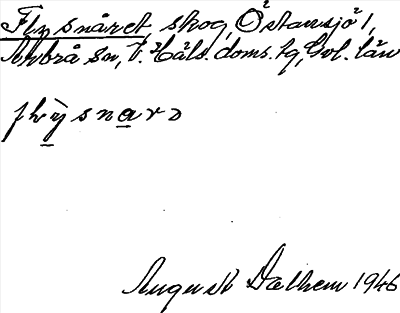 Flysnåret, skog, Östansjö 1,
Arbrå sn, V. Häls. doms. tg, Gvl. län
flỳsnarɔ
August Dalhem 1946